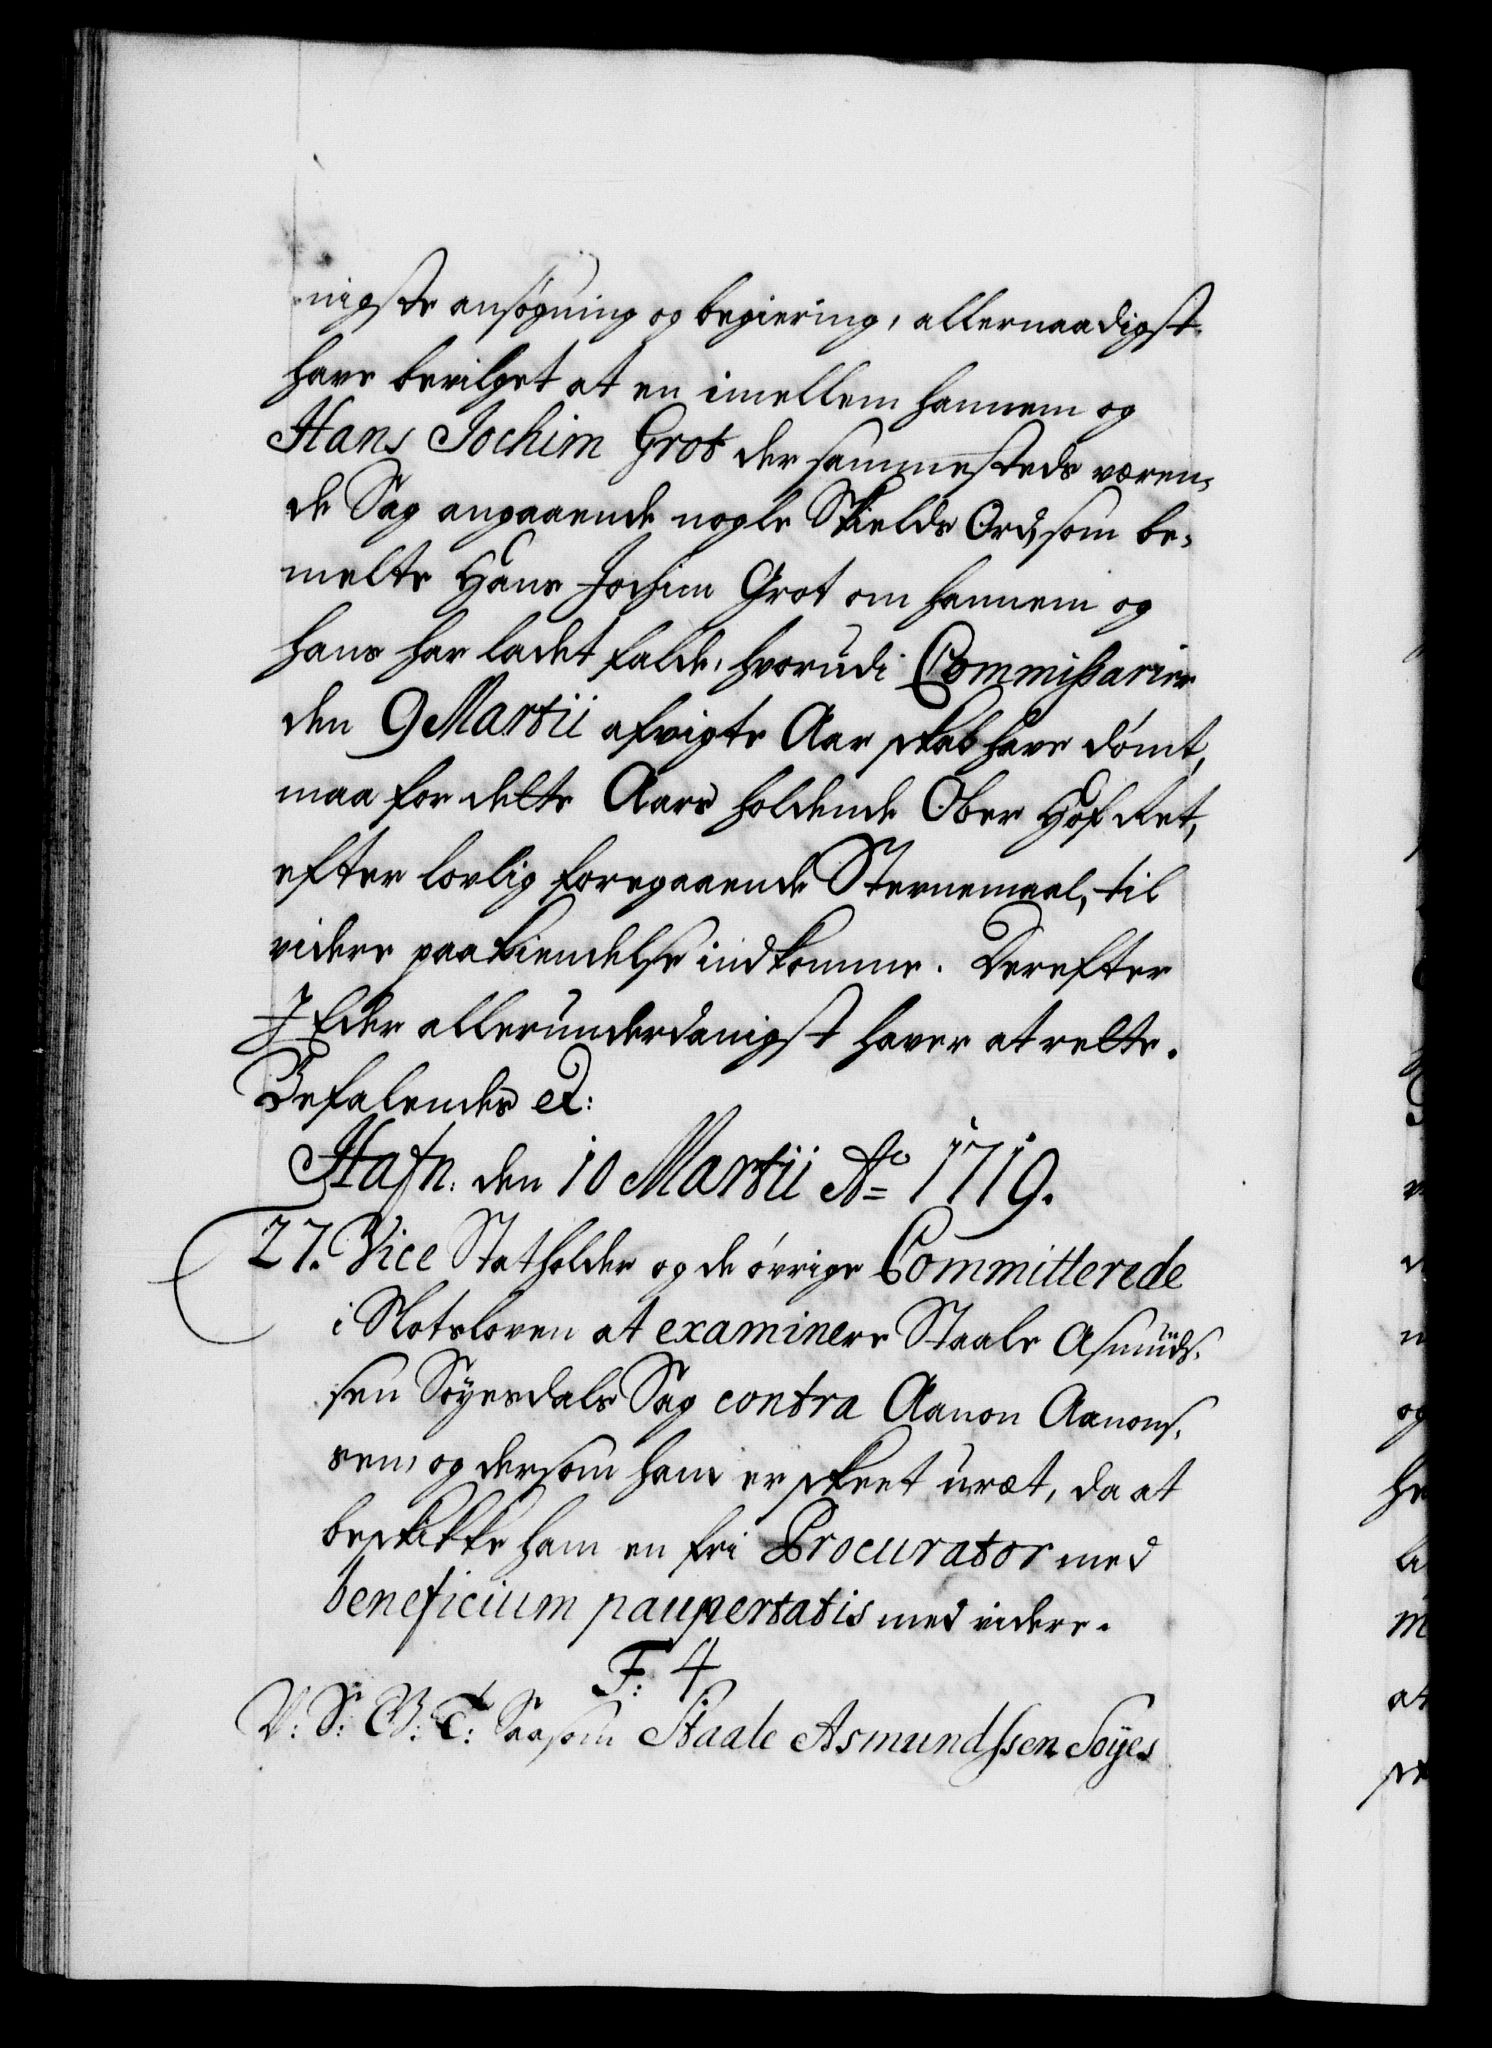 nigste ansøgning og begiering, allernaadigst
have bevilget at en imellem hannem og
Hans Jochim Grot der sammesteds væren-
de Sag angaaende nogle Skields Ord, som be-
melte Hans Jochim Grot om hannem og
hans har ladet falde, hvorudi Commissarier
den 9 Martii afvigte Aar skal have dømt,
maa for dette Aars holdende Ober Hof Ret,
efter lovlig foregaaende Stevnemaal, til
videre paakiendelse indkomme. Derefter
I Eder allerunderdanigst haver at rette.
Befalendes et:
Hafn. den 10 Martii Ao 1719.
27. Vice Statholder og de øvrige Committerede
i Slotsloven at examinere Staale Asmuds-
sen Søyesdals Sag contra Aanon Aanons-
sen, og dersom ham er skeet uræt, da at
beskikke ham en fri Procurator med
beneficium paupertatis med videre.
F: 4
V: S: G: T: Saasom Staale Asmundssen Søyes